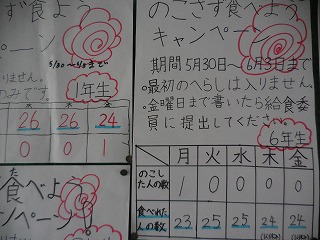 ず食よう
ペーン
5/30〜6/3まで
りません。
のみです。
1年生
木 木 金
26 26 24
0 0 1
た
食べよ
ンペーン!
のこさず食べよう
キャンペーン
期間5月30日〜6月3日まで
最初のへらしは入りません。
金曜日まで書いたら給食委
員に提出してください。
6年生
月 火 水 木 金
のこした人の数 1 0 0 0 0
食べれた人の数 23 25 25 24 24